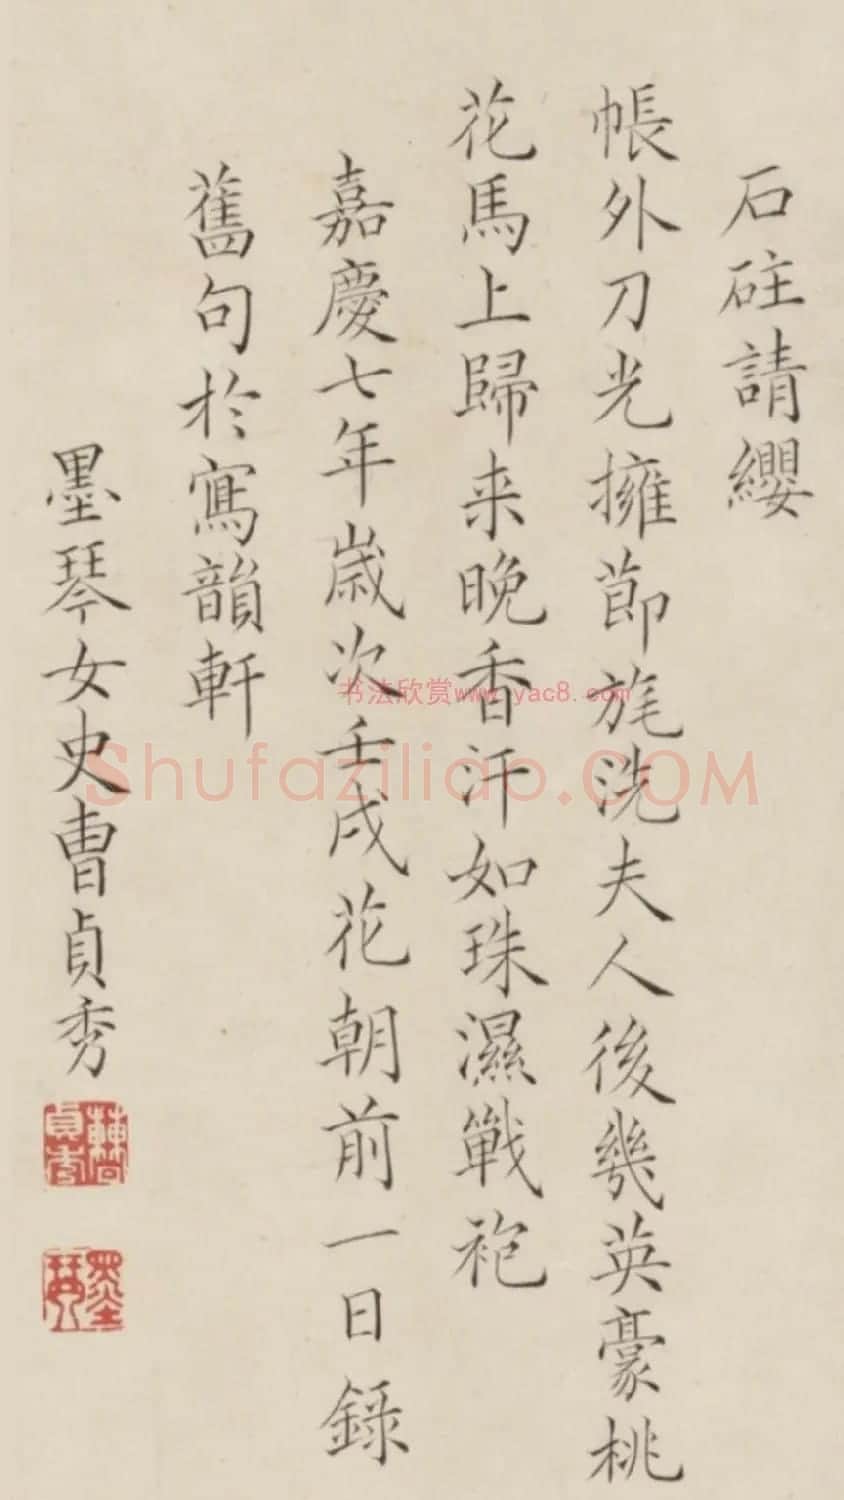 石砫請纓
帳外刀光擁節旄洗夫人後幾英豪桃
花馬上歸来晚香汗如珠濕戰袍
嘉慶七年歲次壬戌花朝前一日錄
舊句於寫韻軒
墨琴女史曹貞秀
曹貞秀
墨琴
书法欣赏www.yac8.com
Shufaziliao.COM